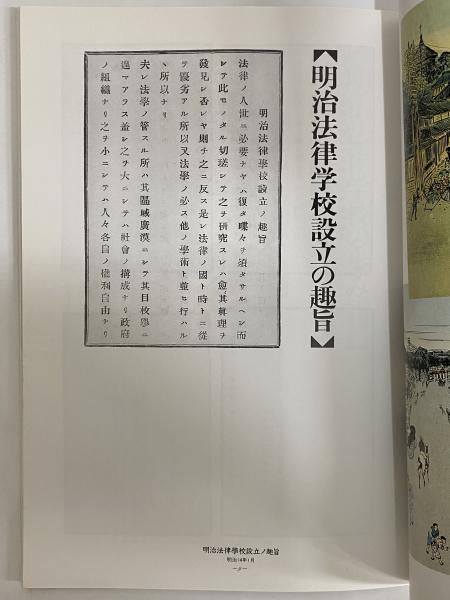 【明治法律学校設立の趣旨】
明治法律學校設立ノ趣旨
法律ノ人世ニ必要ナヤハ復タ喋々ヲ須タサルヘシ而
シテ此モノタル切瑳シテ之ヲ研究スレハ愈其眞理ヲ
發見シ否レハ則チ之ニ反ス是レ法律ノ國ト時トニ從
テ優劣アル所以又法學ノ必ス他ノ學術ト並セ行ハル
ヽ所以ナリ
夫レ法學ノ管スル所ハ其區域廣漠ニシテ其目枚擧ニ
遑マアラス蓋シ之ヲ大ニシテハ社會ノ構成ナリ政府
ノ組織ナリ之ヲ小ニシテハ人々各自ノ權利自由ナリ
明治法律學校設立ノ趣旨
明治14年1月